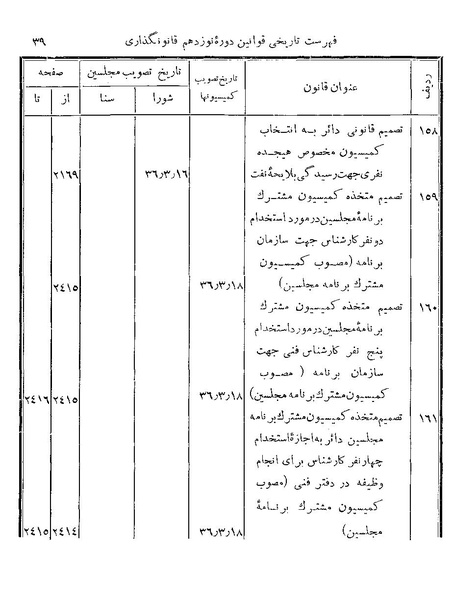 فهرست تاریخی قوانین دورهٔ نوزدهم قانونگذاری ۳۹
ردیف عنوان قانون تاریخ تصویب کمیسیونها تاریخ تصویب مجلسین صفحه
شورا سنا از تا
۱۵۸ تصمیم قانونی دائر به انتخاب
کمیسیون مخصوص هیجده
نفری جهت رسیدگی بلایحهٔ نفت ۳۶٫۳٫۱۶ ۲۱۶۹
۱۵۹ تصمیم متخذه کمیسیون مشترك
برنامهٔ مجلسین در مورد استخدام
دو نفر کارشناس جهت سازمان
برنامه (مصوب کمیسیون
مشترك برنامه مجلسین) ۳۶٫۳٫۱۸ ۲٤۱۵
۱۶۰ تصمیم متخذه کمیسیون مشترك
برنامهٔ مجلسین در مورد استخدام
پنج نفر کارشناس فنی جهت
سازمان برنامه ( مصوب
کمیسیون مشترك برنامه مجلسین) ۳۶٫۳٫۱۸ ۲٤۱۵ ۲٤۱۶
۱۶۱ تصمیم متخذه کمیسیون مشترك برنامه
مجلسین دائر به اجازهٔ استخدام
چهار نفر کارشناس برای انجام
وظیفه در دفتر فنی (مصوب
کمیسیون مشترك برنامهٔ
مجلسین) ۳۶٫۳٫۱۸ ۲٤۱٤ ۲٤۱۵